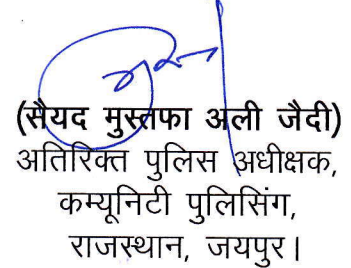 (सैयद मुस्तफा अली जैदी)
अतिरिक्त पुलिस अधीक्षक,
कम्यूनिटी पुलिसिंग,
राजस्थान, जयपुर।